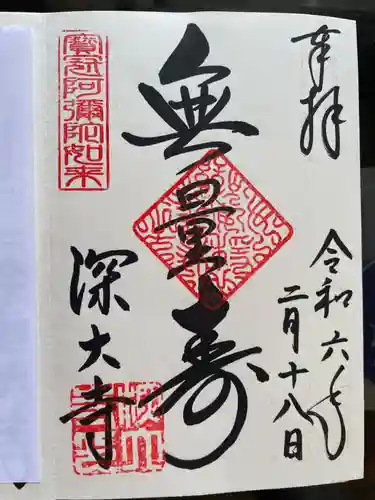 奉拝
令和六年
二月十八日
無量寿
寳冠阿彌陀如来
深大寺